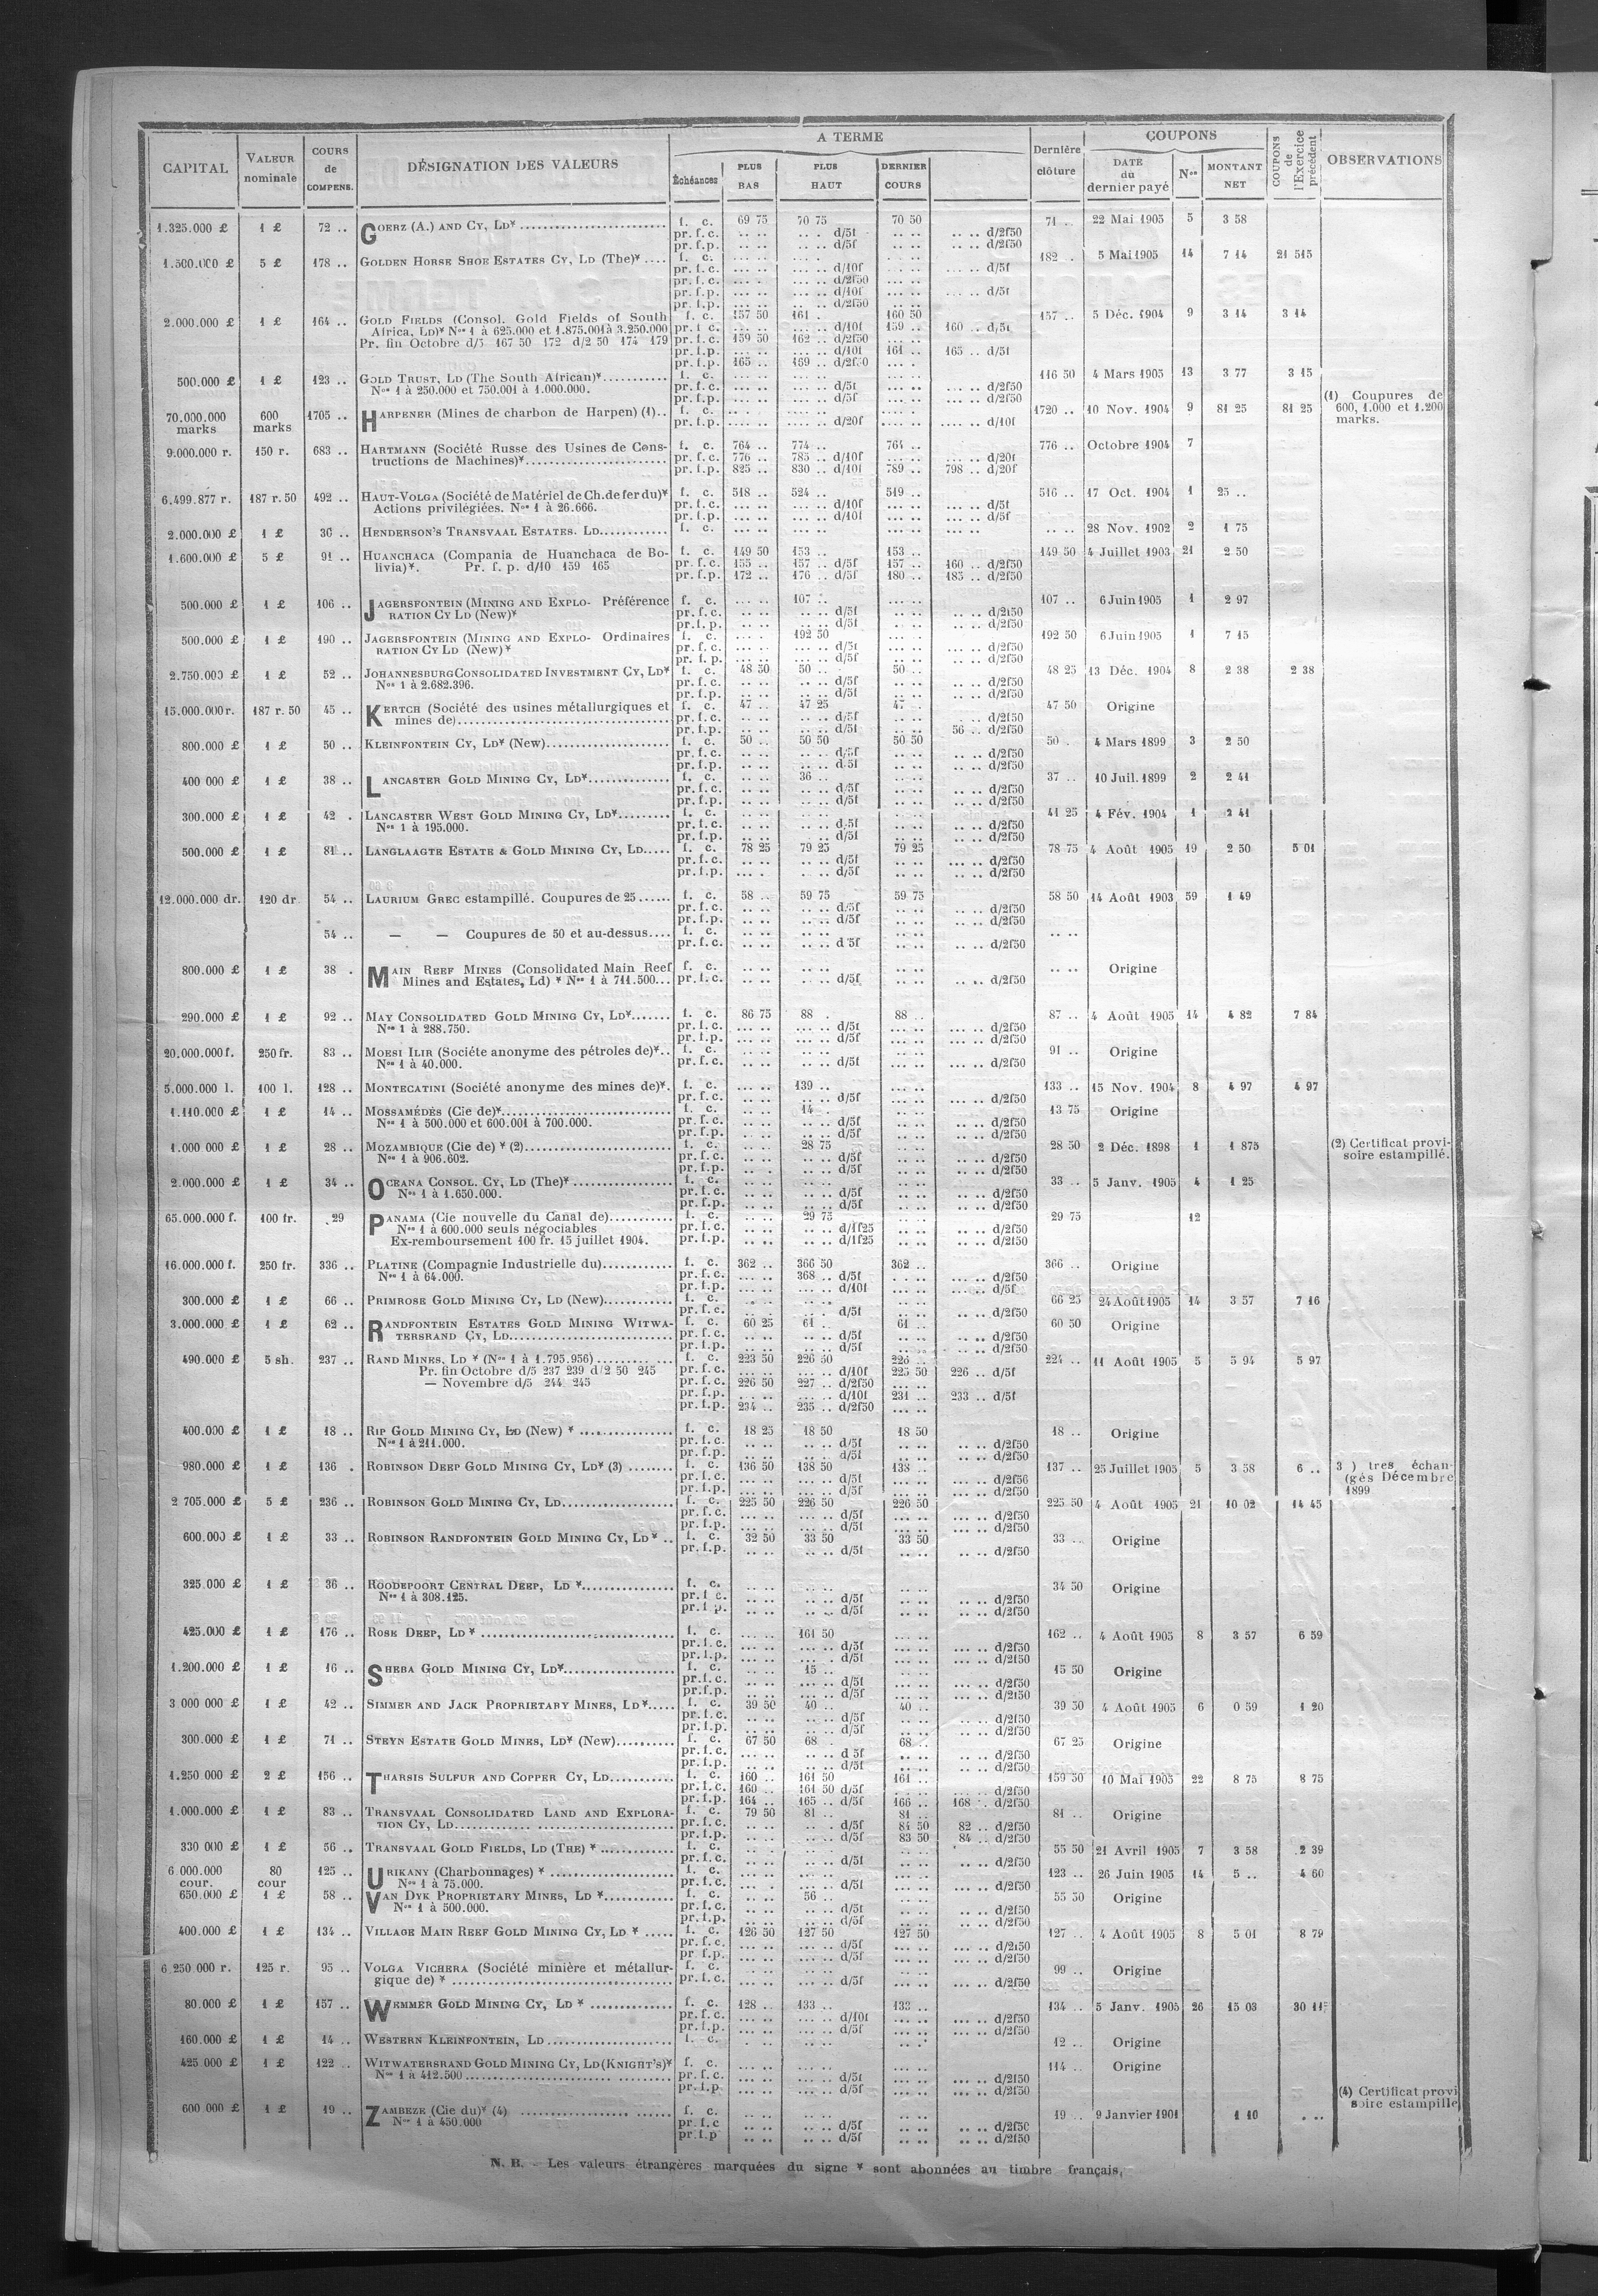 CAPITAL | VALEUR nominale | COURS de COMPENS. | DÉSIGNATION DES VALEURS | A TERME | Échéances | PLUS BAS | PLUS HAUT | DERNIER COURS | Dernière clôture | COUPONS | DATE du dernier payé | Nos | MONTANT NET | COUPONS de l'Exercice précédent | OBSERVATIONS
1.325.000 £ 1 £ 72 .. GOERZ (A.) AND CY, LD* f. c. 69 75 70 75 70 50 71 .. 22 Mai 1905 5 3 58
pr. f. c. .. .. d/5f .. .. d/2f50
pr. f. p. .. .. d/5f .. .. d/2f50
1.500.000 £ 5 £ 178 .. GOLDEN HORSE SHOE ESTATES CY, LD (The)* f. c. 182 . 5 Mai 1905 14 7 14 21 515
pr. f. c. d/10f d/5f
pr. f. c. d/2f50
pr. f. p. d/10f d/5f
pr. f. p. d/2f50
2.000.000 £ 1 £ 164 .. GOLD FIELDS (Consol. Gold Fields of South f. c. 157 50 161 . 160 50 157 .. 5 Déc. 1904 9 3 14 3 14
Africa, LD)* Nos 1 à 625.000 et 1.875.001 à 3.250.000 pr. f. c. d/10f 159 .. 160 .. d/5f
Pr. fin Octobre d/5 167 50 172 d/2 50 174 179 pr. f. c. 159 50 162 .. d/2f50
pr. f. p. d/10f 161 .. 165 .. d/5f
pr. f. p. 165 .. 169 .. d/2f50
500.000 £ 1 £ 123 .. GOLD TRUST, LD (The South African)* f. c. 116 50 4 Mars 1905 13 3 77 3 15
Nos 1 à 250.000 et 750.001 à 1.000.000. pr. f. c. d/5f d/2f50
pr. f. p. d/5f d/2f50
70.000.000 marks 600 marks 1705 .. HARPENER (Mines de charbon de Harpen) (1).. f. c. 1720 .. 10 Nov. 1904 9 81 25 81 25 (1) Coupures de 600, 1.000 et 1.200 marks.
pr. f. p. d/20f d/10f
9.000.000 r. 150 r. 683 .. HARTMANN (Société Russe des Usines de Cons- f. c. 764 .. 774 .. 764 .. 776 .. Octobre 1904 7
tructions de Machines)* pr. f. c. 776 .. 785 .. d/10f d/20f
pr. f. p. 825 .. 830 .. d/10f 789 .. 798 .. d/20f
6.499.877 r. 187 r. 50 492 .. HAUT-VOLGA (Société de Matériel de Ch. de fer du)* f. c. 518 .. 524 .. 519 .. 516 .. 17 Oct. 1904 1 25 ..
Actions privilégiées. Nos 1 à 26.666. pr. f. c. d/10f d/5f
pr. f. p. d/10f d/5f
2.000.000 £ 1 £ 36 .. HENDERSON'S TRANSVAAL ESTATES. LD f. c. .. .. 28 Nov. 1902 2 1 75
1.600.000 £ 5 £ 91 .. HUANCHACA (Compania de Huanchaca de Bo- f. c. 149 50 153 .. 153 .. 149 50 4 Juillet 1903 21 2 50
livia)*. Pr. f. p. d/10 159 165 pr. f. c. 155 .. 157 .. d/5f 157 .. 160 .. d/2f50
pr. f. p. 172 .. 176 .. d/5f 180 .. 185 .. d/2f50
500.000 £ 1 £ 106 .. JAGERSFONTEIN (MINING AND EXPLO- Préférence f. c. 107 .. 107 .. 6 Juin 1905 1 2 97
RATION CY LD (New)* pr. f. c. d/5f d/2f50
pr. f. p. d/5f d/2f50
500.000 £ 1 £ 190 .. JAGERSFONTEIN (MINING AND EXPLO- Ordinaires f. c. 192 50 192 50 6 Juin 1905 1 7 15
RATION CY LD (New)* pr. f. c. d/5f d/2f50
pr. f. p. d/5f d/2f50
2.750.000 £ 1 £ 52 .. JOHANNESBURG CONSOLIDATED INVESTMENT CY, LD* f. c. 48 50 50 .. 50 .. 48 25 13 Déc. 1904 8 2 38 2 38
Nos 1 à 2.682.396. pr. f. c. d/5f d/2f50
pr. f. p. d/5f d/2f50
15.000.000 r. 187 r. 50 45 .. KERTCH (Société des usines métallurgiques et f. c. 47 .. 47 25 47 .. 47 50 Origine
mines de) pr. f. c. d/5f d/2f50
pr. f. p. d/5f 56 .. d/2f50
800.000 £ 1 £ 50 .. KLEINFONTEIN CY, LD* (New) f. c. 50 .. 50 50 50 50 50 . 4 Mars 1899 3 2 50
pr. f. c. d/5f d/2f50
pr. f. p. d/5f d/2f50
400 000 £ 1 £ 38 .. LANCASTER GOLD MINING CY, LD* f. c. 36 .. 37 .. 10 Juil. 1899 2 2 41
pr. f. c. d/5f d/2f50
pr. f. p. d/5f d/2f50
300.000 £ 1 £ 42 . LANCASTER WEST GOLD MINING CY, LD* f. c. 41 25 4 Fév. 1904 1 2 41
Nos 1 à 195.000. pr. f. c. d/5f d/2f50
pr. f. p. d/5f d/2f50
500.000 £ 1 £ 81 .. LANGLAAGTE ESTATE & GOLD MINING CY, LD f. c. 78 25 79 25 79 25 78 75 4 Août 1905 19 2 50 5 01
pr. f. c. d/5f d/2f50
pr. f. p. d/5f d/2f50
12.000.000 dr. 120 dr 54 .. LAURIUM GREC estampillé. Coupures de 25 f. c. 58 .. 59 75 59 75 58 50 14 Août 1903 59 1 49
pr. f. c. d/5f d/2f50
pr. f. p. d/5f d/2f50
54 .. — — Coupures de 50 et au-dessus f. c. .. ..
pr. f. c. d 5f d/2f50
800.000 £ 1 £ 38 . MAIN REEF MINES (Consolidated Main Reef f. c. .. .. Origine
Mines and Estates, Ld) * Nos 1 à 711.500 pr. f. c. d/5f d/2f50
290.000 £ 1 £ 92 .. MAY CONSOLIDATED GOLD MINING CY, LD* f. c. 86 75 88 . 88 .. 87 .. 4 Août 1905 14 4 82 7 84
Nos 1 à 288.750. pr. f. c. d/5f d/2f50
pr. f. p. d/5f d/2f50
20.000.000 f. 250 fr. 83 .. MOESI ILIR (Sociéte anonyme des pétroles de)*.. f. c. 91 .. Origine
Nos 1 à 40.000. pr. f. c. d/5f d/2f50
5.000.000 l. 100 l. 128 .. MONTECATINI (Société anonyme des mines de)*. f. c. 139 .. 133 .. 15 Nov. 1904 8 4 97 4 97
pr. f. c. d/5f d/2f50
1.110.000 £ 1 £ 14 .. MOSSAMÉDÈS (Cie de)* f. c. 14 . 13 75 Origine
Nos 1 à 500.000 et 600.001 à 700.000. pr. f. c. d/5f d/2f50
pr. f. p. d/5f d/2f50
1.000 000 £ 1 £ 28 .. MOZAMBIQUE (Cie de) * (2) f. c. 28 75 28 50 2 Déc. 1898 1 1 875 (2) Certificat provi-soire estampillé.
Nos 1 à 906.602. pr. f. c. d/5f d/2f50
pr. f. p. d/5f d/2f50
2.000.000 £ 1 £ 34 .. OCEANA CONSOL. CY, LD (The)* f. c. 33 .. 5 Janv. 1905 4 1 25
Nos 1 à 1.650.000. pr. f. c. d/5f d/2f50
pr. f. p. d/5f d/2f50
65.000.000 f. 100 fr. 29 PANAMA (Cie nouvelle du Canal de) f. c. 29 75 29 75 12
Nos 1 à 600.000 seuls négociables pr. f. c. d/1f25 d/2f50
Ex-remboursement 100 fr. 15 juillet 1904. pr. f. p. d/1f25 d/2f50
16.000.000 f. 250 fr. 336 .. PLATINE (Compagnie Industrielle du) f. c. 362 .. 366 50 362 .. 366 .. Origine
Nos 1 à 64.000. pr. f. c. 368 .. d/5f d/2f50
pr. f. p. d/10f d/5f
300.000 £ 1 £ 66 .. PRIMROSE GOLD MINING CY, LD (New) f. c. 66 25 24 Août 1905 14 3 57 7 16
pr. f. c. d/5f d/2f50
3.000.000 £ 1 £ 62 .. RANDFONTEIN ESTATES GOLD MINING WITWA- f. c. 60 25 61 .. 61 .. 60 50 Origine
TERSRAND CY, LD pr. f. c. d/5f d/2f50
pr. f. p. d/5f d/2f50
490.000 £ 5 sh. 237 .. RAND MINES, LD * (Nos 1 à 1.795.956) f. c. 223 50 226 50 226 .. 224 .. 11 Août 1905 5 5 94 5 97
Pr. fin Octobre d/5 237 239 d/2 50 245 pr. f. c. d/10f 225 50 226 .. d/5f
— Novembre d/5 244 245 pr. f. c. 226 50 227 .. d/2f50
pr. f. p. d/10f 231 .. 233 .. d/5f
pr. f. p. 234 .. 235 .. d/2f50
400.000 £ 1 £ 18 .. RIP GOLD MINING CY, LD (New) * f. c. 18 25 18 50 18 50 18 .. Origine
Nos 1 à 211.000. pr. f. c. d/5f d/2f50
pr. f. p. d/5f d/2f50
980.000 £ 1 £ 136 . ROBINSON DEEP GOLD MINING CY, LD* (3) f. c. 136 50 138 50 138 .. 137 .. 25 Juillet 1905 5 3 58 6 .. 3 ) tres échan-(gés Décembre 1899
pr. f. c. d/5f d/2f56
pr. f. p. d/5f d/2f50
2 705.000 £ 5 £ 236 .. ROBINSON GOLD MINING CY, LD f. c. 225 50 226 50 226 50 225 50 4 Août 1905 21 10 02 14 45
pr. f. c. d/5f d/2f50
pr. f. p. d/5f d/2f50
600.000 £ 1 £ 33 .. ROBINSON RANDFONTEIN GOLD MINING CY, LD* .. f. c. 32 50 33 50 33 50 33 .. Origine
pr. f. p. d/5f d/2f50
325.000 £ 1 £ 36 .. ROODEPOORT CENTRAL DEEP, LD * f. c. 34 50 Origine
Nos 1 à 308.125. pr. f c. d/5f d/2f50
pr. f p. d/5f d/2f50
425.000 £ 1 £ 176 .. ROSE DEEP, LD * f. c. 161 50 162 .. 4 Août 1905 8 3 57 6 59
pr. f. c. d/5f d/2f50
pr. f. p. d/5f d/2f50
1.200.000 £ 1 £ 16 .. SHEBA GOLD MINING CY, LD* f. c. 15 .. 15 50 Origine
pr. f. c. d/5f d/2f50
pr. f. p. d/5f d/2f50
3 000 000 £ 1 £ 42 .. SIMMER AND JACK PROPRIETARY MINES, LD* f. c. 39 50 40 .. 40 .. 39 50 4 Août 1905 6 0 59 1 20
pr. f. c. d/5f d/2f50
pr. f. p. d/5f d/2f50
300.000 £ 1 £ 71 .. STEYN ESTATE GOLD MINES, LD* (New) f. c. 67 50 68 .. 68 .. 67 25 Origine
pr. f. c. d 5f d/2f50
pr. f. p. d/5f d/2f50
1.250 000 £ 2 £ 156 .. THARSIS SULFUR AND COPPER CY, LD f. c. 160 .. 161 50 161 .. 159 50 10 Mai 1905 22 8 75 8 75
pr. f. c. 160 .. 161 50 d/5f d/2f50
pr. f. p. 164 .. 165 .. d/5f 166 .. 168 .. d/2f50
1.000.000 £ 1 £ 83 .. TRANSVAAL CONSOLIDATED LAND AND EXPLORA- f. c. 79 50 81 .. 81 .. 81 .. Origine
TION CY, LD pr. f. c. d/5f 81 50 82 .. d/2f50
pr. f. p. d/5f 83 50 84 .. d/2f50
330 000 £ 1 £ 56 .. TRANSVAAL GOLD FIELDS, LD (THE) * f. c. 55 50 21 Avril 1905 7 3 58 2 39
pr. f. c. d/5f d/2f50
6 000.000 cour. 80 cour 125 .. URIKANY (Charbonnages) * f. c. 123 .. 26 Juin 1905 14 5 .. 4 60
Nos 1 à 75.000. pr. f. c. d/5f d/2f50
650.000 £ 1 £ 58 .. VAN DYK PROPRIETARY MINES, LD * f. c. 56 .. 55 50 Origine
Nos 1 à 500.000. pr. f. c. d/5f d/2f50
pr. f. p. d/5f d/2f50
400.000 £ 1 £ 134 .. VILLAGE MAIN REEF GOLD MINING CY, LD * f. c. 126 50 127 50 127 50 127 .. 4 Août 1905 8 5 01 8 79
pr. f. c. d/5f d/2f50
pr f. p. d/5f d/2f50
6 250 000 r. 125 r. 95 .. VOLGA VICHERA (Société minière et métallur- f. c. 99 .. Origine
gique de) * pr. f. c. d/5f d/2f50
80.000 £ 1 £ 157 .. WEMMER GOLD MINING CY, LD * f. c. 128 .. 133 .. 133 .. 134 .. 5 Janv. 1905 26 15 03 30 11
pr. f. c. d/10f d/2f50
pr. f. p. d/5f d/2f50
160.000 £ 1 £ 14 .. WESTERN KLEINFONTEIN, LD f. c. 12 .. Origine
425 000 £ 1 £ 122 .. WITWATERSRAND GOLD MINING CY, LD (KNIGHT'S)* f. c. 114 .. Origine
Nos 1 à 412.500 pr. f. c. d/5f d/2f50
pr. f. p d/5f d/2f50
600 000 £ 1 £ 19 .. ZAMBEZE (Cie du)* (4) f. c. 19 .. 9 Janvier 1901 1 10 .. (4) Certificat provi soire estampille
Nos 1 à 450.000 pr. f. c d/5f d/2f50
pr. f. p d/5f d/2f50
N. B. - Les valeurs étrangères marquées du signe * sont abonnées au timbre français.